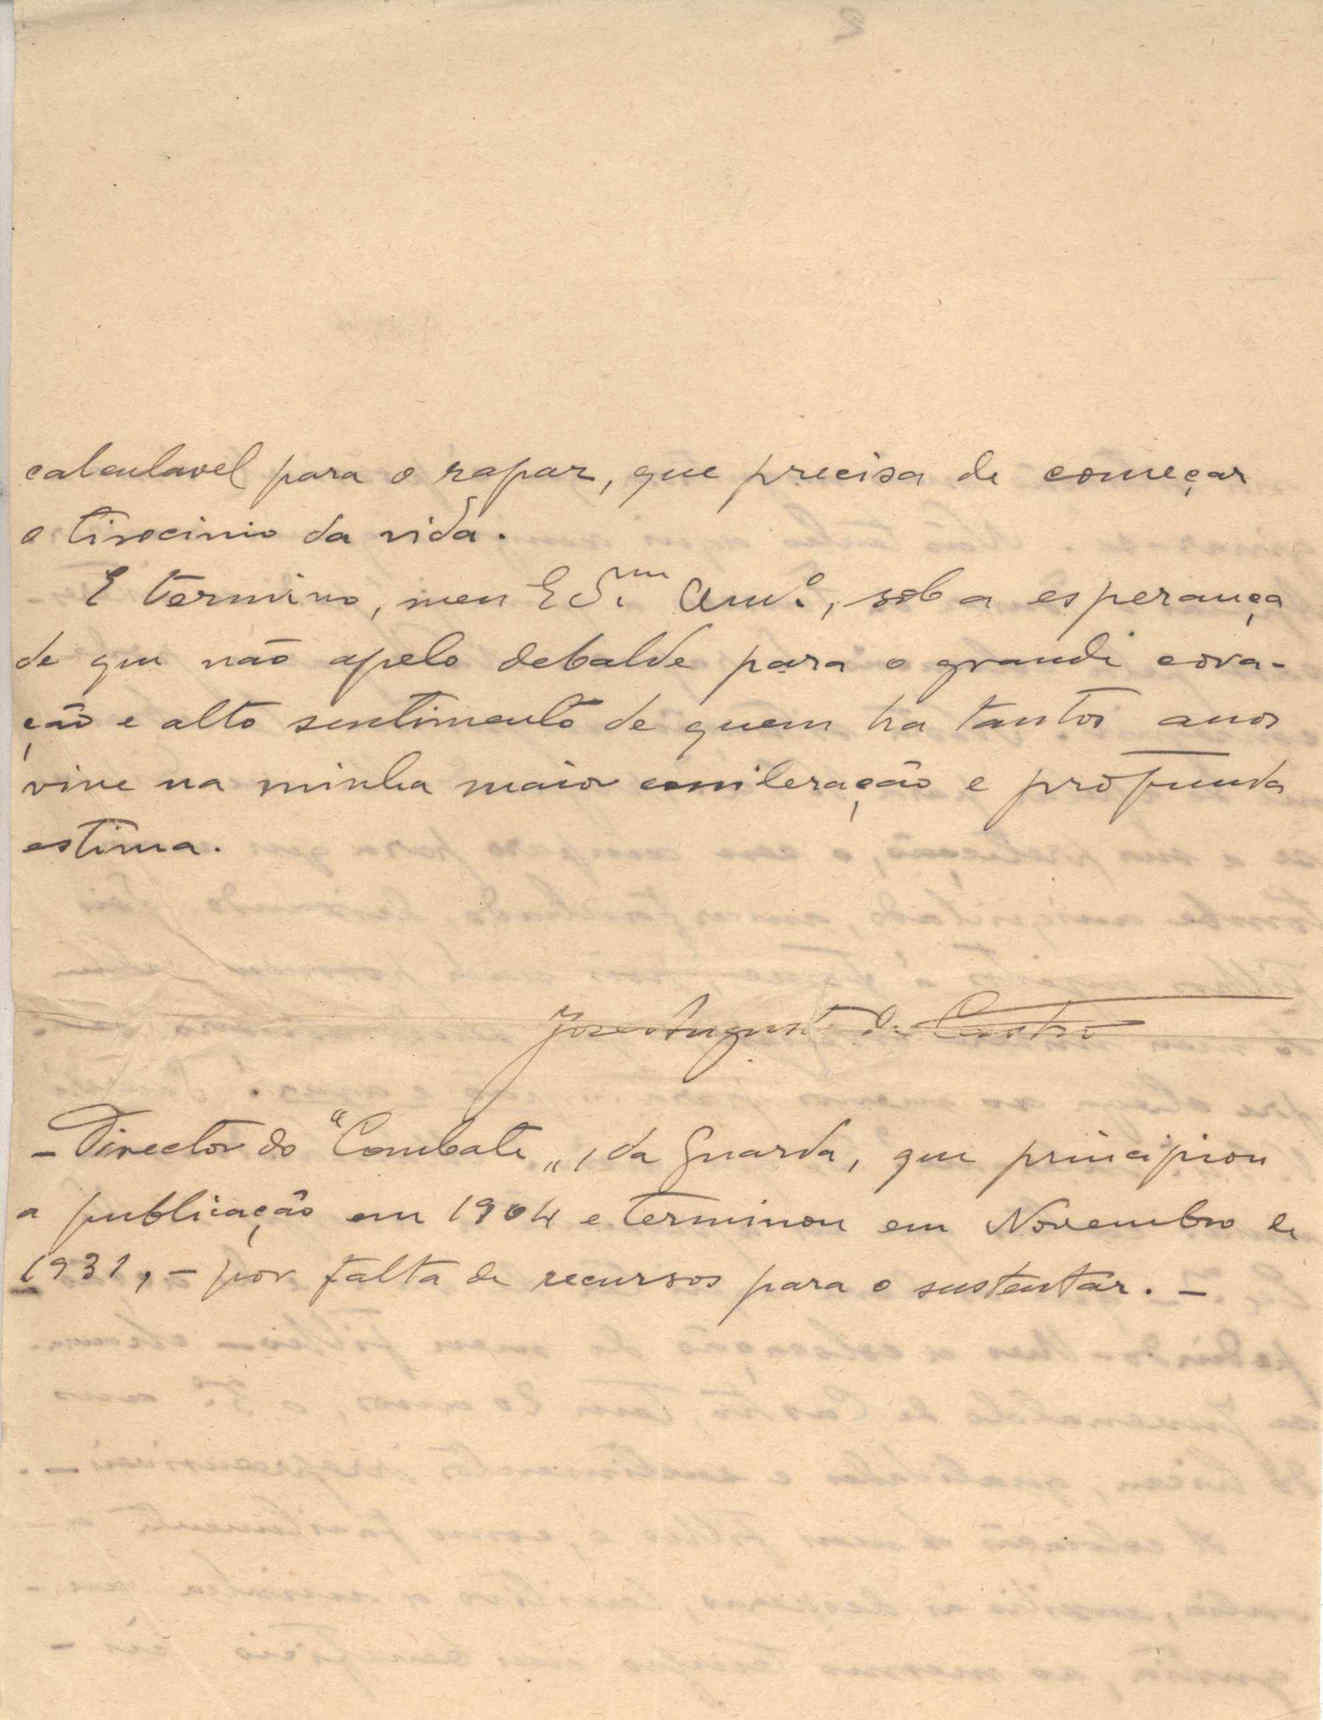 calculavel para o rapaz, que precisa de começar
o tirocinio da vida.
E termino, meu Am.º, sob a esperança
de que não apelo debalde para o grande cora-
ção e alto sentimento de quem ha tantos anos
vive na minha maior consideração e profunda
estima.
José Augusto de Castro
- Director do "Combate„, da Guarda, que principiou
a publicação em 1904 e terminou em Novembro de
1931, - por falta de recursos para o sustentar. -